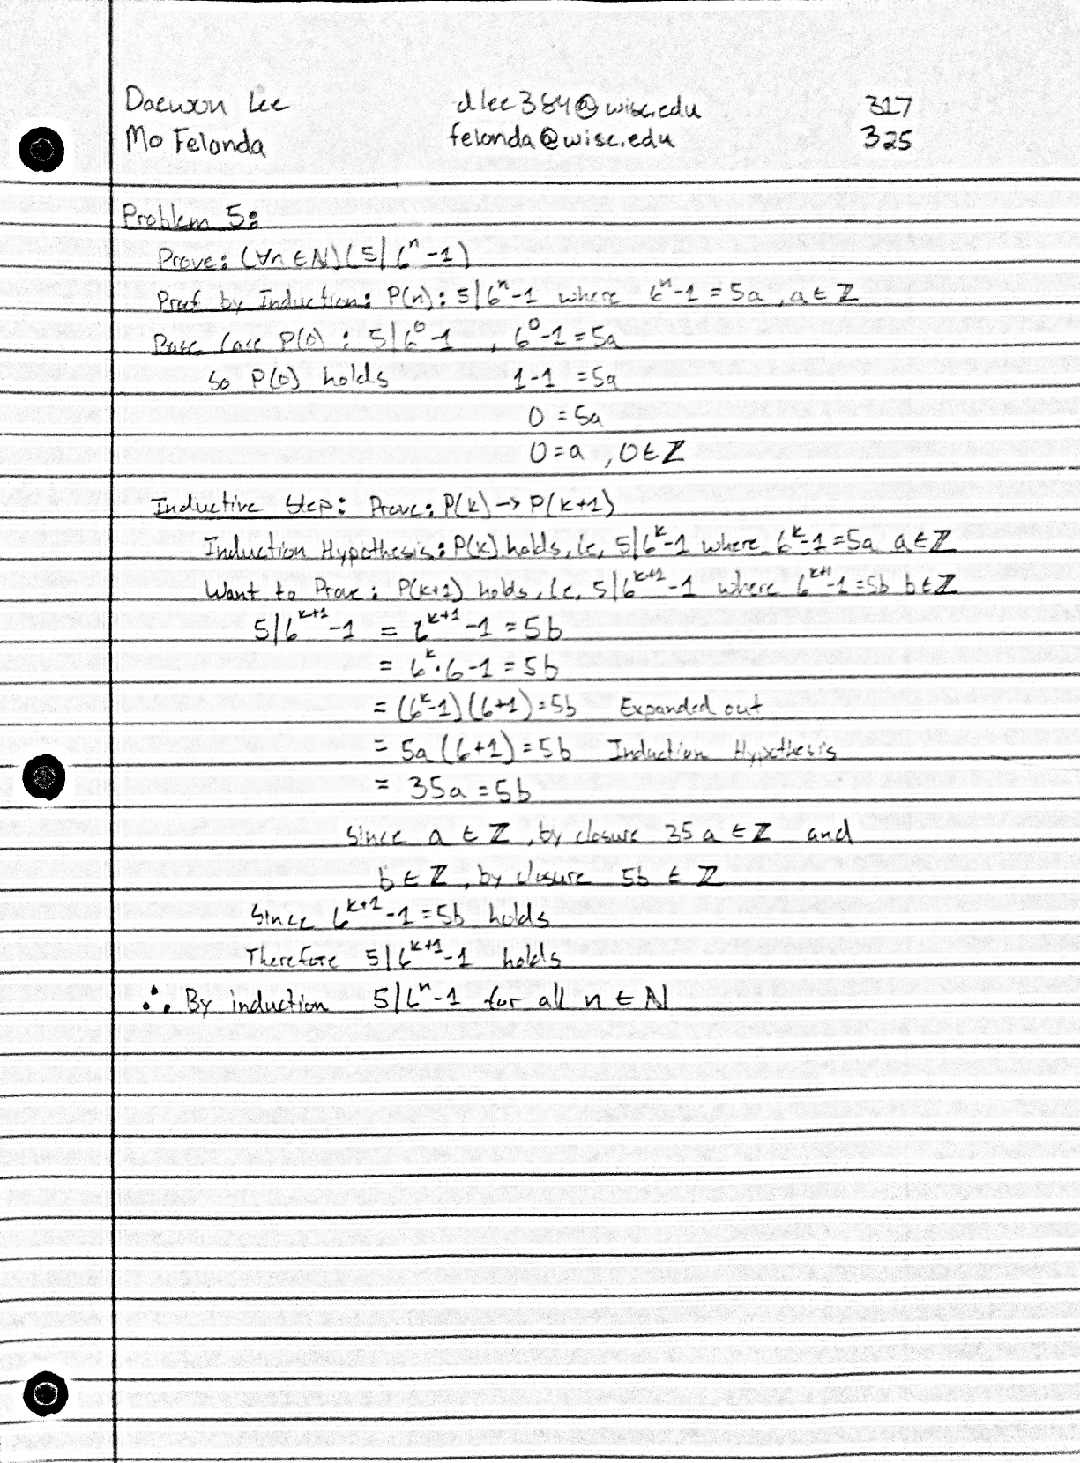 Daewon Lee dlee384@wisc.edu 317
Mo Felonda felonda@wisc.edu 325
Problem 5:
Prove: (∀n ∈ ℕ)(5|6ⁿ-1)
Proof by Induction: P(n): 5|6ⁿ-1 where 6ⁿ-1 = 5a, a ∈ ℤ
Base Case P(0): 5|6⁰-1, 6⁰-1 = 5a
So P(0) holds 1-1 = 5a
0 = 5a
0 = a, 0 ∈ ℤ
Inductive Step: Prove: P(k) → P(k+1)
Induction Hypothesis: P(k) holds, ie, 5|6ᵏ-1 where 6ᵏ-1 = 5a a ∈ ℤ
Want to Prove: P(k+1) holds, ie, 5|6ᵏ⁺¹-1 where 6ᵏ⁺¹-1 = 5b b ∈ ℤ
5|6ᵏ⁺¹-1 = 6ᵏ⁺¹-1 = 5b
= 6ᵏ·6-1 = 5b
= (6ᵏ-1)(6+1) = 5b Expanded out
= 5a(6+1) = 5b Induction Hypothesis
= 35a = 5b
Since a ∈ ℤ, by closure 35a ∈ ℤ and
b ∈ ℤ, by closure 5b ∈ ℤ
Since 6ᵏ⁺¹-1 = 5b holds
Therefore 5|6ᵏ⁺¹-1 holds
∴ By induction 5|6ⁿ-1 for all n ∈ ℕ